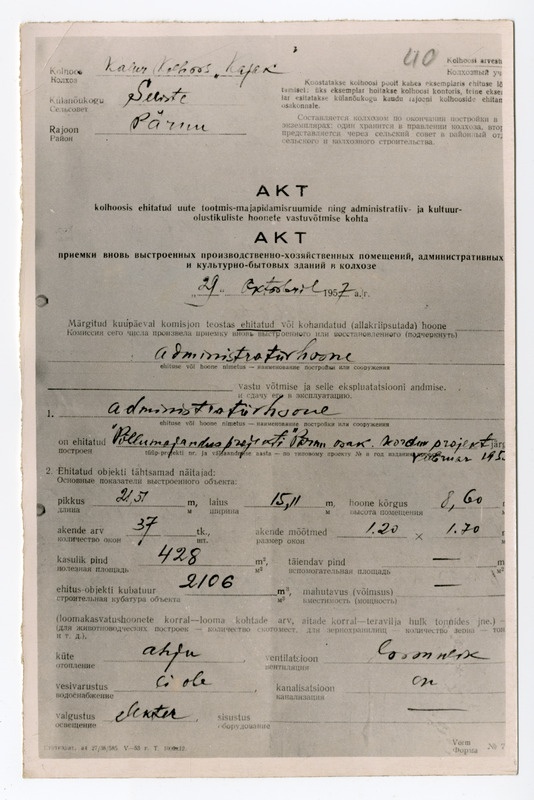 40
Kolhoos Kalur Kolhoos „Kajak
Колхоз
Külanõukogu Seliste
Сельсовет
Rajoon Pärnu
Район
Kolhoosi arvesh
Колхозный уч
Koostatakse kolhoosi poolt kahes eksemplaris ehituse lõ
tamisel: üks eksemplar hoitakse kolhoosi kontoris, teine eksem
lar esitatakse külanõukogu kaudu rajooni kolhooside ehitan
osakonnale.
Составляется колхозом по окончании постройки в
экземплярах: один хранится в правлении колхоза, втор
представляется через сельский совет в районный от
сельского и колхозного строительства.
AKT
kolhoosis ehitatud uute tootmis-majapidamisruumide ning administratiiv- ja kultuur-
olustikuliste hoonete vastuvõtmise kohta
АКТ
приемки вновь выстроенных производственно-хозяйственных помещений, административных
и культурно-бытовых зданий в колхозе
„29" oktoobril 1957 a./г.
Märgitud kuupäeval komisjon teostas ehitatud või kohandatud (allakriipsutada) hoone
Комиссия сего числа произвела приемку вновь выстроенного или восстановленного (подчеркнуть)
administratiirhoone
ehituse või hoone nimetus — наименование постройки или сооружения
vastu võtmise ja selle ekspluatatsiooni andmise.
и сдачу его в эксплуатацию.
1. administratiirhoone
ehituse või hoone nimetus — наименование постройки или сооружения
on ehitatud "Põllumajandusprojekti" Pärnu osak. kordus projekt järg
построен
veebruar 195
2. Ehitatud objekti tähtsamad näitajad:
Основные показатели выстроенного объекта:
pikkus 21,51 m, laius 15,11 m, hoone kõrgus 8,60 m
длина м ширина м высота помещения м
akende arv 37 tk., akende mõõtmed 1.20 × 1.70 m
количество окон шт. размер окон
kasulik pind 428 m², täiendav pind —
полезная площадь м² вспомогательная площадь м²
ehitus-objekti kubatuur 2106 m³, mahutavus (võimsus) —
строительная кубатура объекта м³ вместимость (мощность)
(loomakasvatushoonete korral—looma kohtade arv, aitade korral—teravilja hulk tonnides jne.) —
(для животноводческих построек — количество скотомест, для зернохранилищ — количество зерна — тон
и т. д.).
küte ahju ventilatsioon loomulik
отопление вентиляция
vesivarustus ei ole kanalisatsioon on
водоснабжение канализация
valgustus elekter sisustus —
освещение оборудование
Vorm
Форма № 7